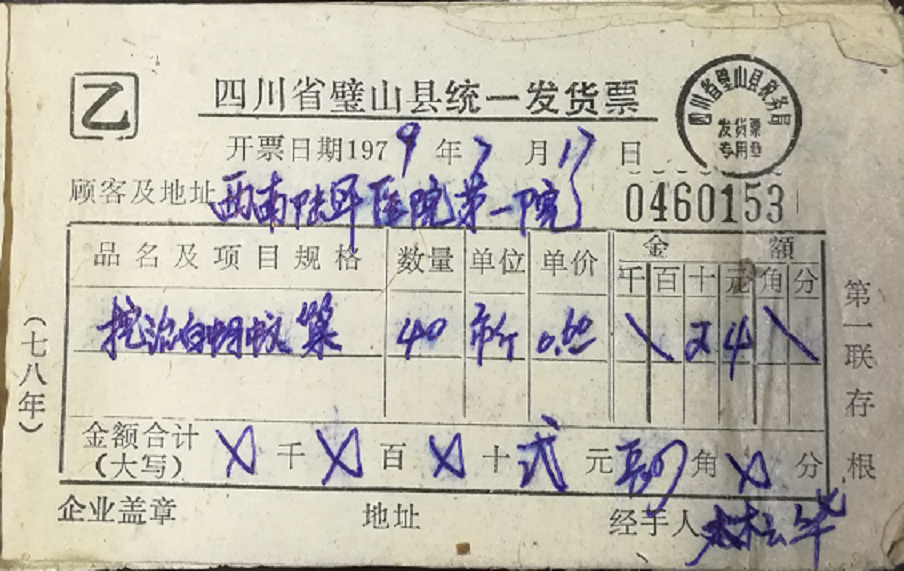 乙
四川省璧山县统一发货票
四川省璧山县税务局
发货票
专用章
开票日期1979年7月17日
顾客及地址西南陆军医院第一院
0460153
品名及项目规格 数量 单位 单价 金额
千 百 十 元 角 分
挖治白蚂蚁巢 40 市斤 0.60 \ 2 4 \
金额合计(大写) X千X百X十贰元肆角X分
企业盖章 地址 经手人
(七八年)
第一联存根